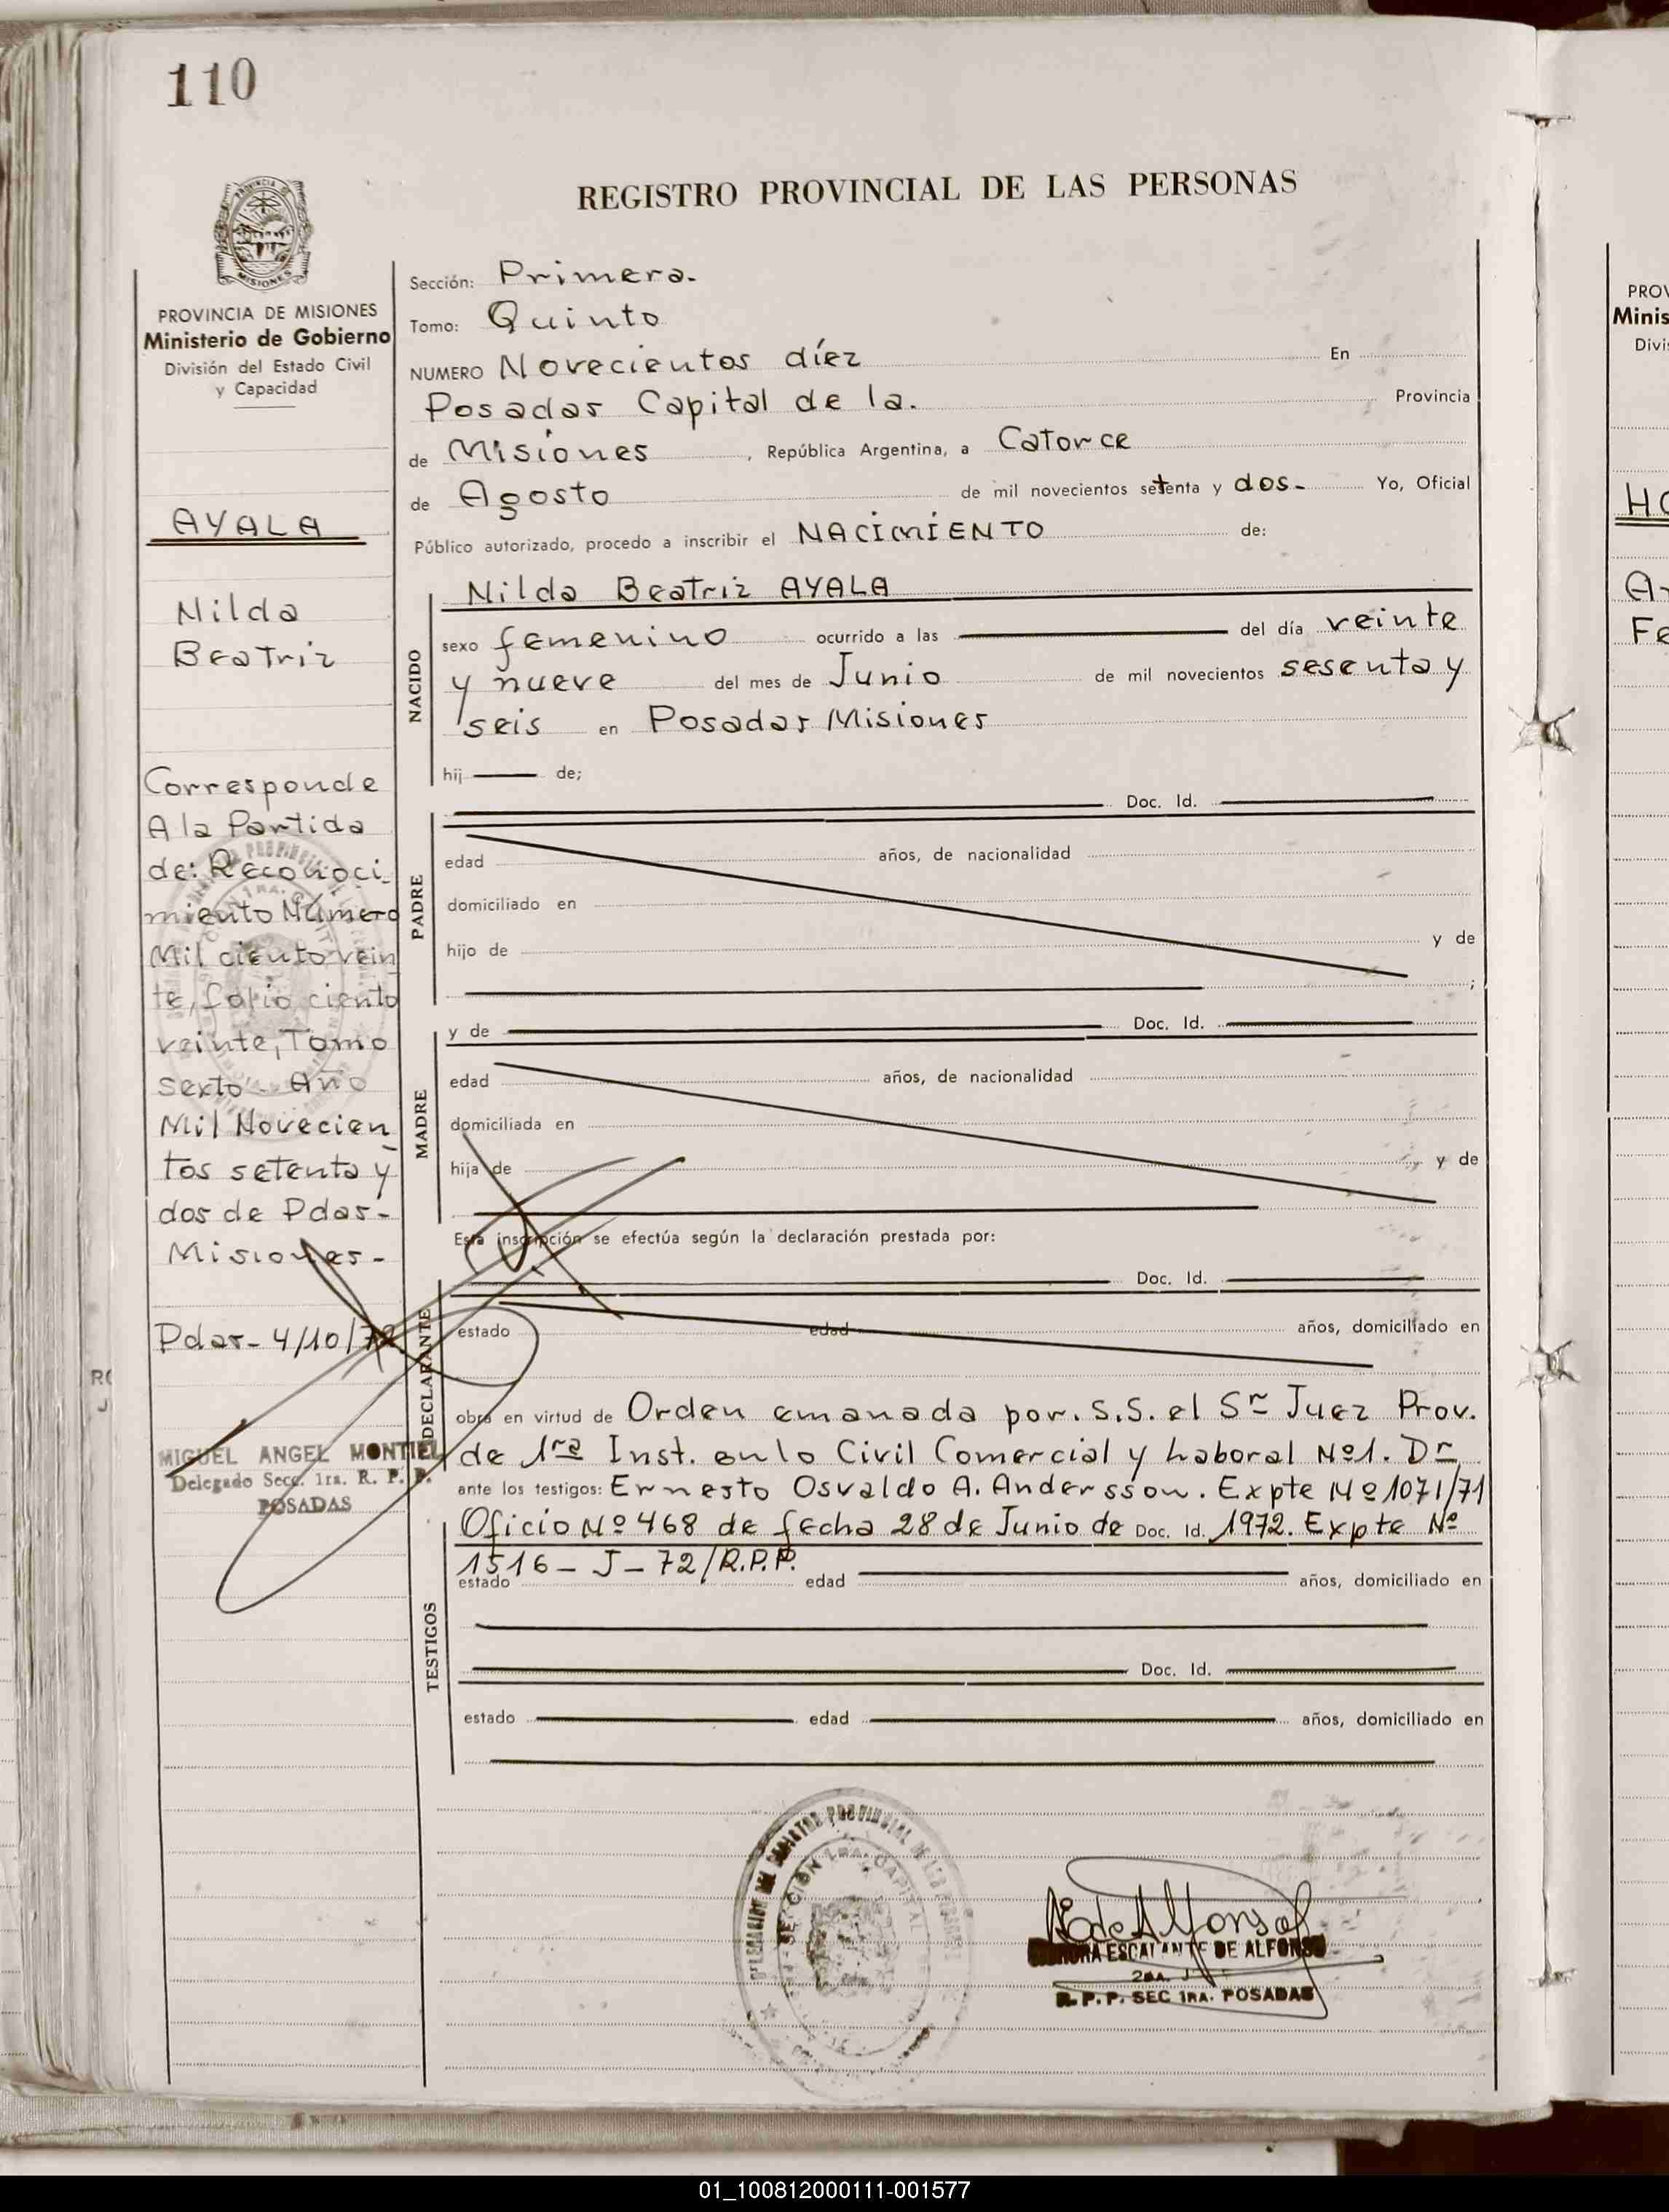 110
REGISTRO PROVINCIAL DE LAS PERSONAS
MISIONES
PROVINCIA DE MISIONES
Ministerio de Gobierno
División del Estado Civil
y Capacidad
AYALA
Nilda
Beatriz
Corresponde
A la Partida
de: Reconoci_
miento Número
Mil ciento vein
te, folio ciento
veinte, Tomo
sexto - Año
Mil Novecien_
tos setenta y
dos de Pdas-
Misiones-
Pdas- 4/10/72
MIGUEL ANGEL MONTIEL
Delegado Secc. 1ra. R. P. P.
POSADAS
Sección: Primera.
Tomo: Quinto
NUMERO Novecientos diez En
Posadas Capital de la. Provincia
de Misiones, República Argentina, a Catorce
de Agosto de mil novecientos setenta y dos- Yo, Oficial
Público autorizado, procedo a inscribir el NACIMIENTO de:
NACIDO
Nilda Beatriz AYALA
sexo femenino ocurrido a las del día veinte
y nueve del mes de Junio de mil novecientos sesenta y
seis en Posadas Misiones
hij de;
Doc. Id.
PADRE
edad años, de nacionalidad
domiciliado en
hijo de y de
;
MADRE
y de Doc. Id.
edad años, de nacionalidad
domiciliada en
hija de y de
Esta inscripción se efectúa según la declaración prestada por:
DECLARANTE
Doc. Id.
estado edad años, domiciliado en
obra en virtud de Orden emanada por. S.S. el Sr Juez Prov.
de 1ra Inst. en lo Civil Comercial y Laboral Nº1. Dr
ante los testigos: Ernesto Osvaldo A. Andersson. Expte Nº 1071/71
Oficio Nº 468 de fecha 28 de Junio de Doc. Id. 1972. Expte Nº
1516 - J - 72/R.P.P.
TESTIGOS
estado edad años, domiciliado en
Doc. Id.
estado edad años, domiciliado en
DELEGACION DEL REGISTRO PROVINCIAL DE LAS PERSONAS
SECCION 1RA. CAPITAL
ESCALANTE DE ALFONSO
2DA. J
R. P. P. SEC 1RA. POSADAS
PROV
Minis
Divi
HO
A
Fe
01_100812000111-001577